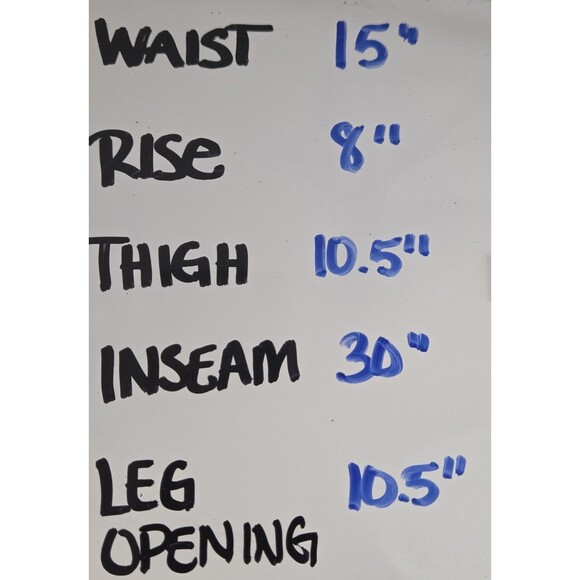 WAIST 15"
RISe 8"
THIGH 10.5"
INSEAM 30"
LEG 10.5"
OPENING